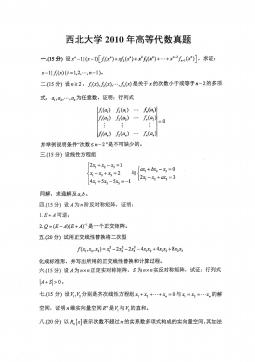 西北大学 2010 年高等代数真题
一.(15 分) 设 xⁿ-1|(x-1)[f₁(xⁿ)+xf₂(xⁿ)+x²f₃(xⁿ)+⋯+xⁿ⁻²fₙ₋₁(xⁿ)], 求证:
x-1|fᵢ(x),i=1,2,⋯,n-1。
二.(15 分) 设 n≥2, f₁(x),f₂(x),⋯,fₙ(x) 是关于 x 的次数小于或等于 n-2 的多项
式, a₁,a₂,⋯,aₙ 为任意数, 证明: 行列式
f₁(a₁) f₁(a₂) ⋯ f₁(aₙ)
f₂(a₁) f₂(a₂) ⋯ f₂(aₙ)
⋮ ⋮ ⋮ =0
fₙ(a₁) fₙ(a₂) ⋯ fₙ(aₙ)
并举例说明条件“次数 ≤ n-2”是不可缺少的。
三.(15 分) 设线性方程组
2x₁+x₂-x₃=1
x₁-x₂+x₃=2 与 ax₁+bx₂-x₃=0
4x₁+5x₂-5x₃=-1 2x₁-x₂+ax₃=3
同解, 求通解及 a,b。
四.(15 分) 设 A 为 n 阶反对称矩阵, 证明:
1. E+A 可逆;
2. Q=(E-A)(E+A)⁻¹ 是一个正交矩阵。
五.(20 分) 试用正交线性替换将二次型
f(x₁,x₂,x₃)=x₁²-2x₂²-2x₃²-4x₁x₂+4x₁x₃+8x₂x₃
化成标准形, 并写出所用的正交线性替换和计算过程。
六.(15 分) 设 A 为 n×n 正定实对称矩阵, S 为 n×n 实反对称矩阵, 试证: 行列式
|A+S|>0。
七.(15 分) 设 V₁,V₂ 分别是齐次线性方程组 x₁+x₂+⋯+xₙ=0 与 x₁=x₂=⋯=xₙ 的解
空间, 证明 n 维实向量空间 Rⁿ 是 V₁ 与 V₂ 的直和。
八.(20 分) 以 R[x]ₙ 表示次数不超过 n 的实系数多项式构成的实向量空间, 其加法